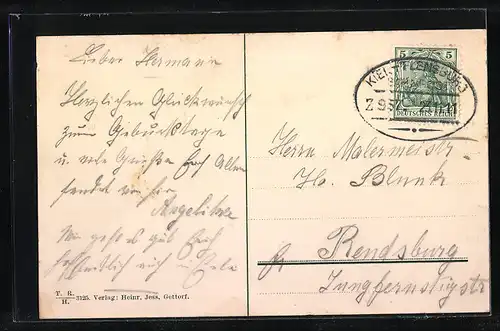 Lieber Hermann
Herzlichen Glückwunsch
zum Geburtstage
u. viele Grüße Euch Allen
sendet von hier
Angelika
Wir geht es gut Euch
hoffentlich auch
T. R. 3125. Verlag: Heinr. Jess, Gottorf.
H.
5 5
DEUTSCHES REICH
KIEL-FLENSBURG
Herrn Malermeistr.
H. Blunk
Rendsburg
Jungfernstiegstr